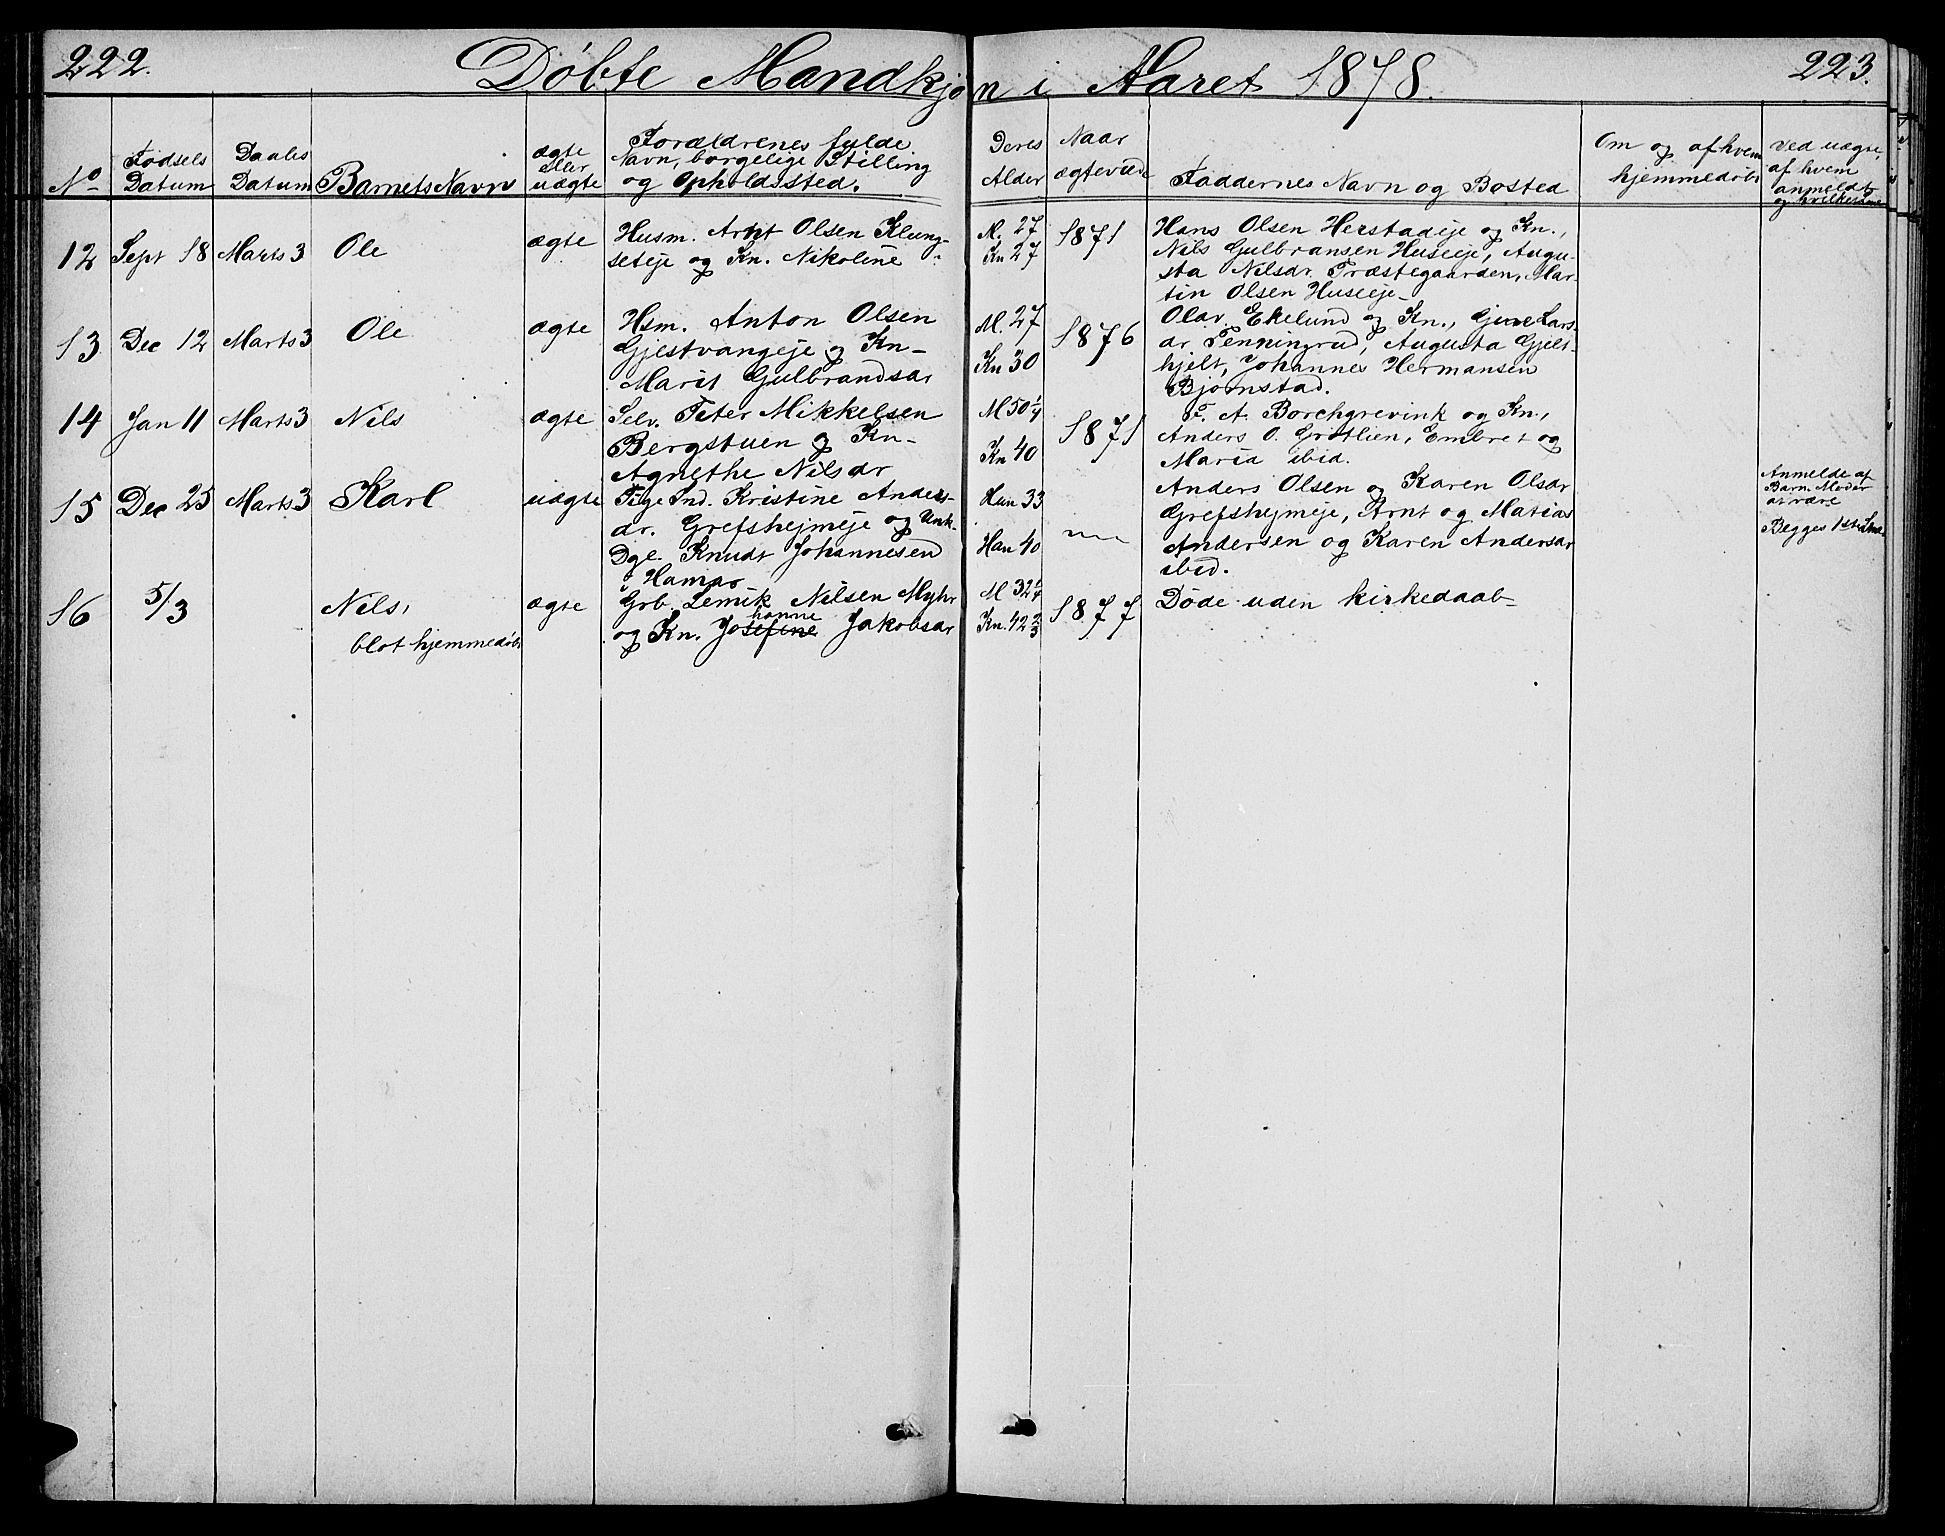 222.
Døbte Mandkjøn i Aaret 1878.
223.
No
Fødsels
Datum
Daabs
Datum
Barnets Navn
ægte
eller
uægte
Forældrenes fulde
Navn, borgelige Stilling
og Opholdssted.
Deres
Alder
Naar
ægteviede
Faddernes Navn og Bosted
Om og af hvem
hjemmedøbt
Ved uægte,
af hvem
anmeldt
og hvilkets
12
Sept 18
Marts 3
Ole
ægte
Husm. Arnt Olsen Klung-
seteje og Kn. Nikoline
M. 27
Kn 27
1871
Hans Olsen Herstadeje og Kn.,
Nils Gulbransen Huseeje, Augu-
sta Nilsdr. Præstegaarden, Mar-
tin Olsen Huseeje-
13
Dec 12
Marts 3
Ole
ægte
Hsm. Anton Olsen
Gjestvangeje og Kn-
Marit Gulbrandsdr
M. 27
Kn 30
1876
Olav Ekelund og Kn., Gune Lars-
dr. Penningrud, Augusta Gjelt-
hjelt, Johannes Hermansen
Bjørnstad.
14
Jan 11
Marts 3
Nils
ægte
Selv. Peter Mikkelsen
Bergstuen og Kn-
Agnethe Nilsdr
M 50 1/4
Kn 40
1871
F. A. Borchgrevink og Kn.,
Anders O. Grøtlien, Embret og
Maria ibid.
15
Dec 25
Marts 3
Karl
uægte
Pige Ind. Kristine Anders-
dr. Grefshejmeje og Unk.
Dgl. Knudt Johannesen
i Hamar
Hun 33
Han 40
Anders Olsen og Karen Olsdr
Grefshejmeje, Arnt og Matias
Andersen og Karen Andersdr
ibid.
Anmelde af
Barn. Moder
at være
Begges 1ste
16
5/3
Nils,
blot hjemmedøbt
ægte
Grb. Lemik Nilsen Myhr
hanne
og Kn. Josefine Jakobsdr
M 32 1/4
Kn. 42 2/3
1877
Døde uden kirkedaab-